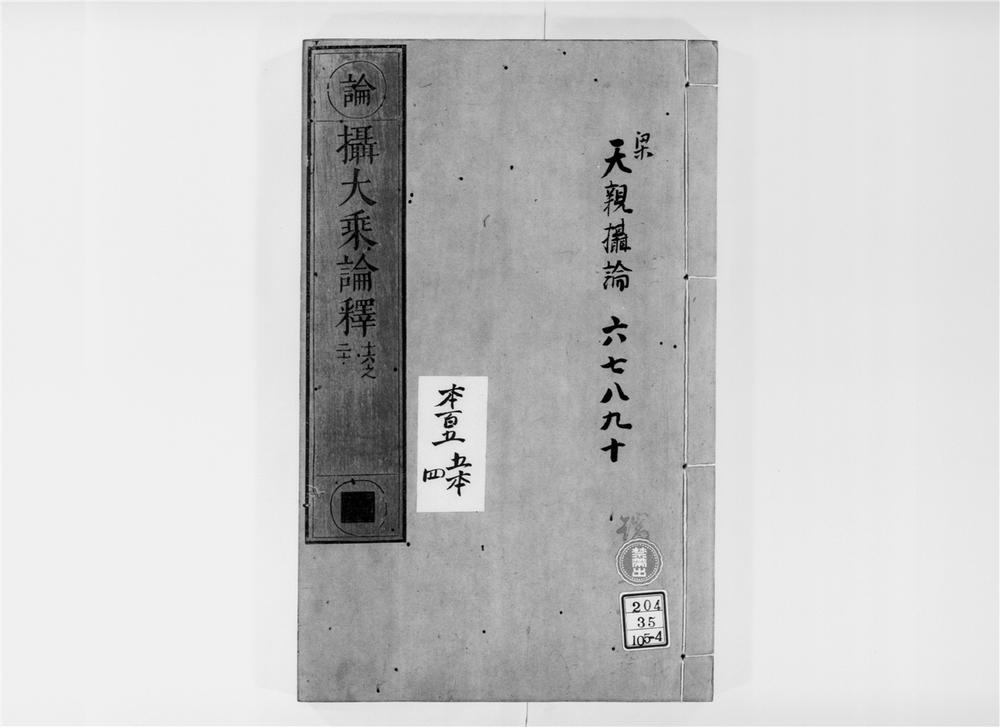 梁
天親攝論 六七八九十
論
攝大乘論釋
十六之
二十
本百五
五本
四
禁帯出
204
35
105-4